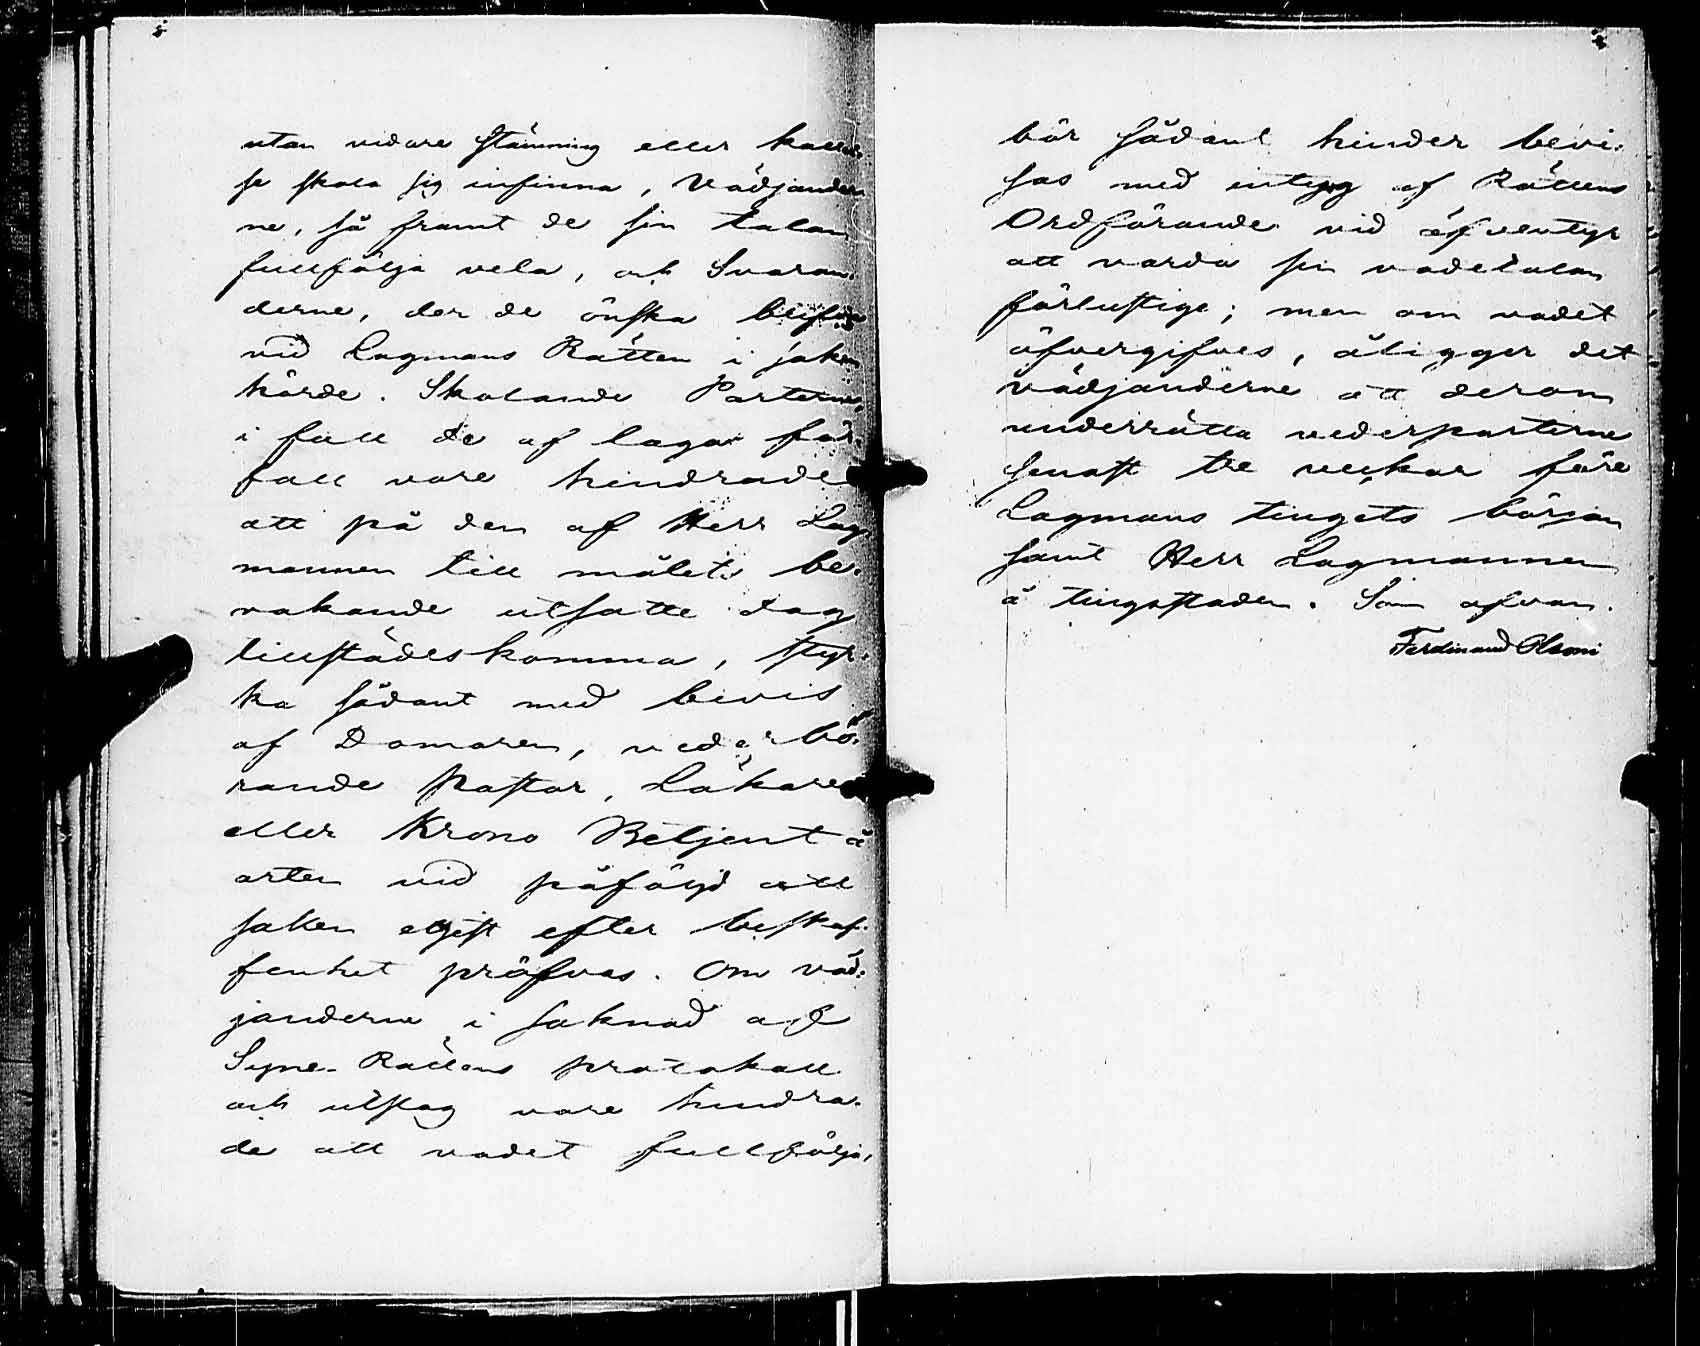 utan vidare stämning eller kallel-
se skola sig infinna, Vädjander
ne, så framt de sin talan
fullfölja vela, och Svaran-
derne, der de önska blifva
vid Lagmans Rätten i saken
hörde. Skolande Parterne,
i fall de af laga för-
fall vore hindrade
att på den af Herr Lag
mannen till målets be-
vakande utsatte dag
tillstädeskomma, styr-
ka sådant med bevis
af Domaren, vederbö-
rande Pastor, Läkare
eller Krono Betjent å
orten vid påföljd att
saken eljest efter beskaf-
fenhet pröfvas. Om väd-
janderne i saknad af
Syne-Rättens protokoll
och utslag vore hindra-
de att vadet fullfölja,
bör sådant hinder bevi-
sas med intyg af Rättens
Ordförande vid äfventyr
att varda sin vadetalan
förlustige; men om vadet
öfvergifves, åligger det
vädjanderne att derom
underrätta vederparterne
senast tre veckor före
Lagmans tingets början
samt Herr Lagmannen
å tingsstaden. Som ofvan.
Ferdinand Olsoni